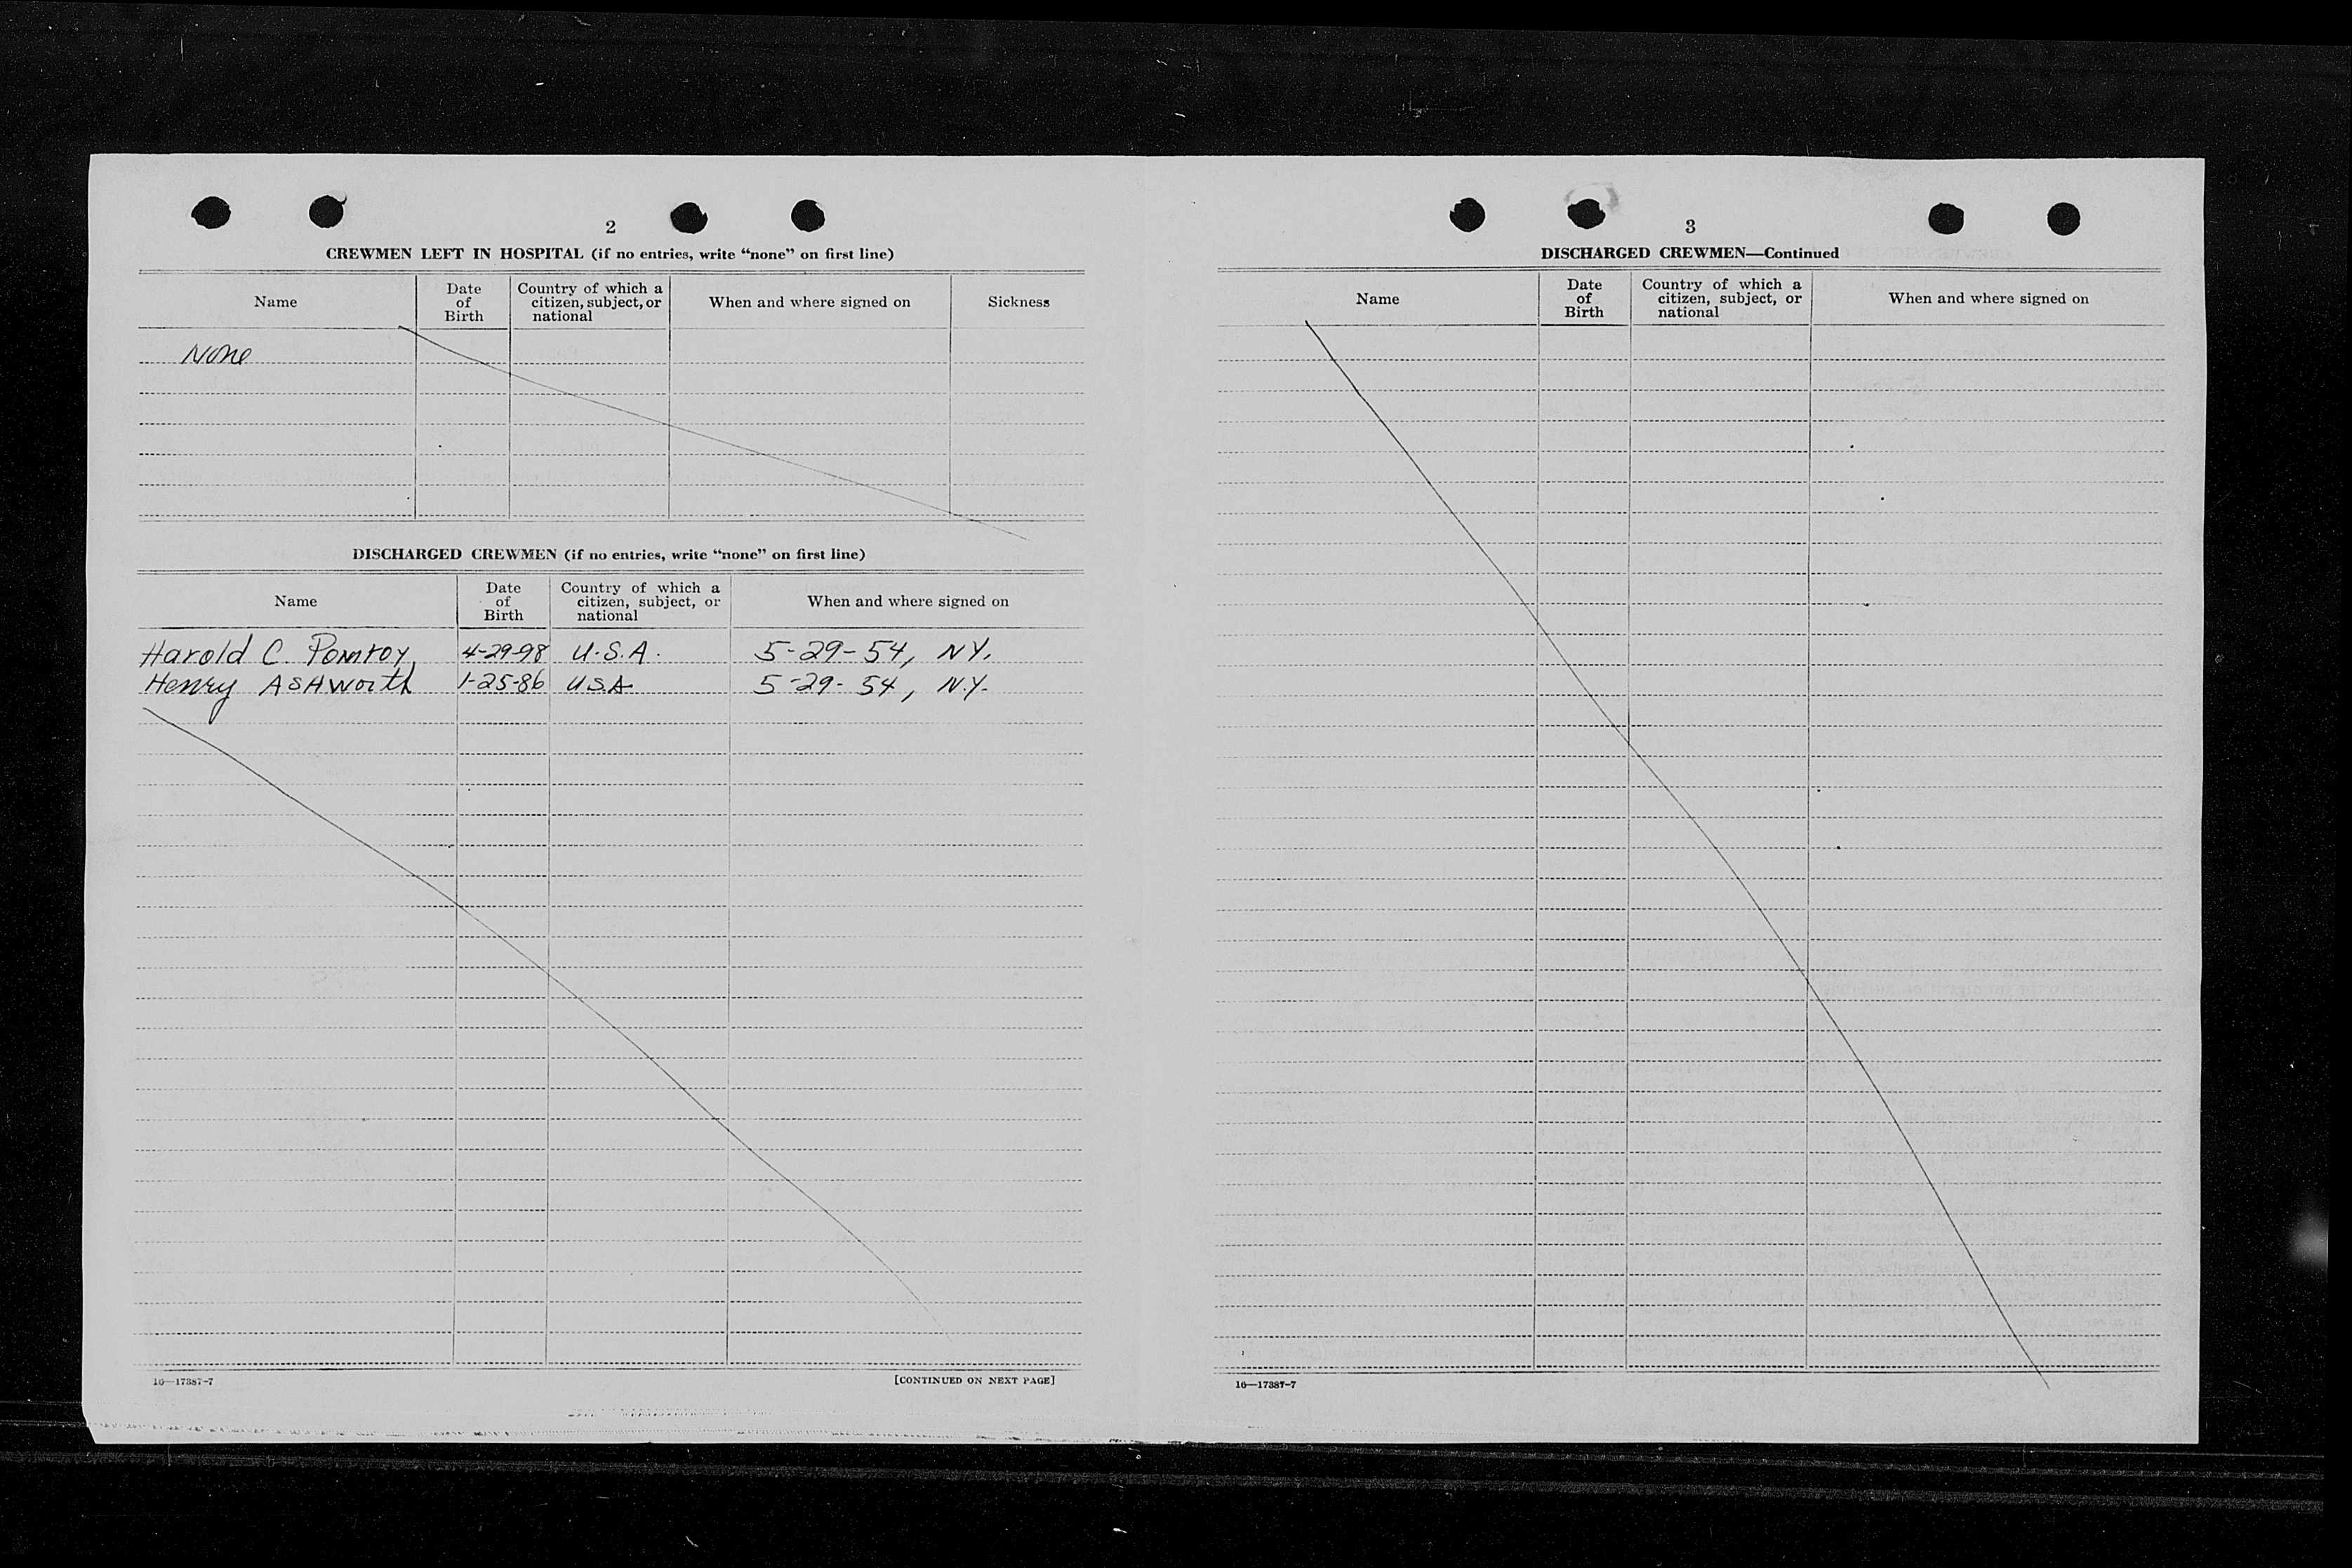 2
CREWMEN LEFT IN HOSPITAL (if no entries, write “none” on first line)
Name
Date of Birth
Country of which a citizen, subject, or national
When and where signed on
Sickness
None
DISCHARGED CREWMEN (if no entries, write “none” on first line)
Name
Date of Birth
Country of which a citizen, subject, or national
When and where signed on
Harold C. Pomroy 4-29-98 U.S.A. 5-29-54, NY.
Henry ASHworth 1-25-86 USA 5-29-54, N.Y.
16—17387-7
[CONTINUED ON NEXT PAGE]
3
DISCHARGED CREWMEN—Continued
Name
Date of Birth
Country of which a citizen, subject, or national
When and where signed on
16—17387-7